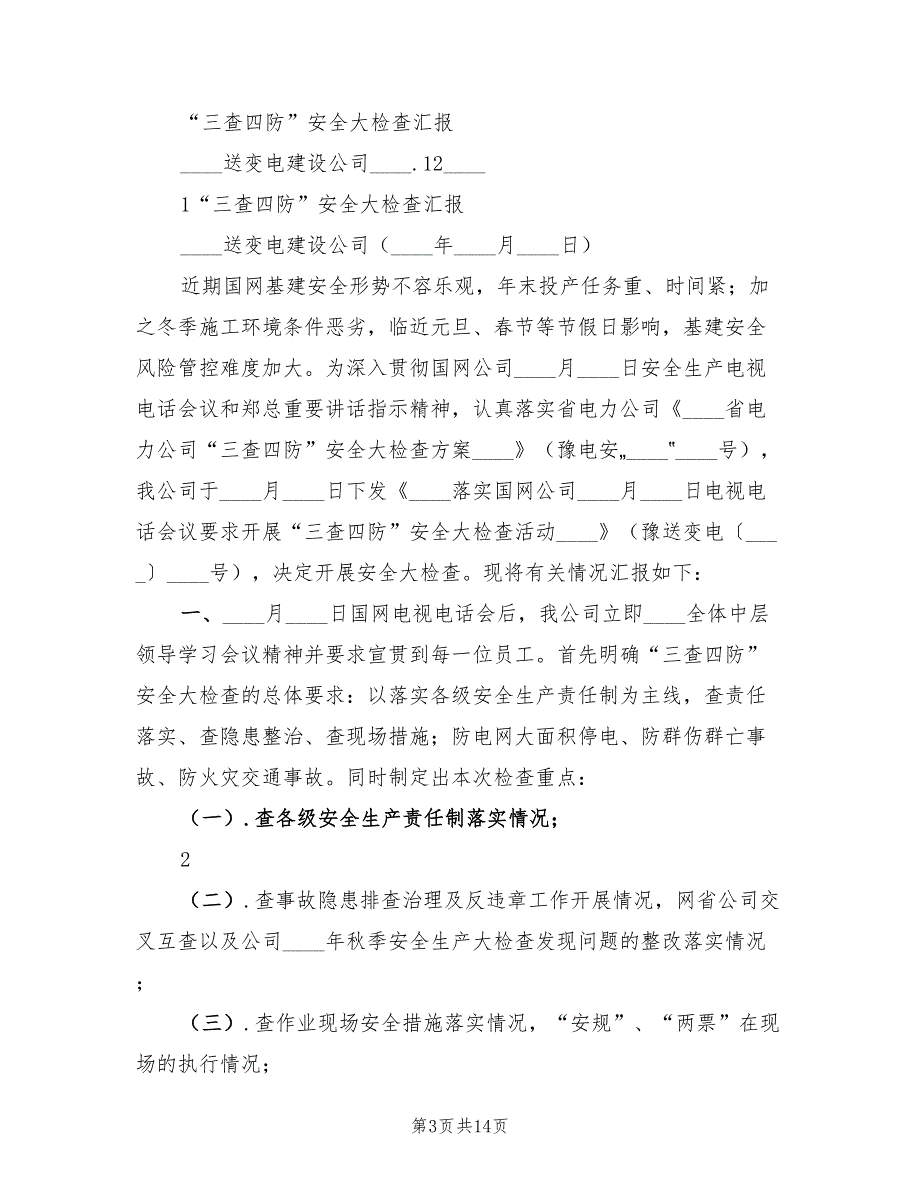 “三查四防”安全大检查汇报
____送变电建设公司____.12____
1“三查四防”安全大检查汇报
____送变电建设公司（____年____月____日）
近期国网基建安全形势不容乐观，年末投产任务重、时间紧；加
之冬季施工环境条件恶劣，临近元旦、春节等节假日影响，基建安全
风险管控难度加大。为深入贯彻国网公司____月____日安全生产电视
电话会议和郑总重要讲话指示精神，认真落实省电力公司《____省电
力公司“三查四防”安全大检查方案____》（豫电安„____‟____号），
我公司于____月____日下发《____落实国网公司____月____日电视电
话会议要求开展“三查四防”安全大检查活动____》（豫送变电〔___
_〕____号），决定开展安全大检查。现将有关情况汇报如下：
一、____月____日国网电视电话会后，我公司立即____全体中层
领导学习会议精神并要求宣贯到每一位员工。首先明确“三查四防”
安全大检查的总体要求：以落实各级安全生产责任制为主线，查责任
落实、查隐患整治、查现场措施；防电网大面积停电、防群伤群亡事
故、防火灾交通事故。同时制定出本次检查重点：
（一）.查各级安全生产责任制落实情况；
2
（二）.查事故隐患排查治理及反违章工作开展情况，网省公司交
叉互查以及公司____年秋季安全生产大检查发现问题的整改落实情况
；
（三）.查作业现场安全措施落实情况，“安规”、“两票”在现
场的执行情况；
第3页共14页